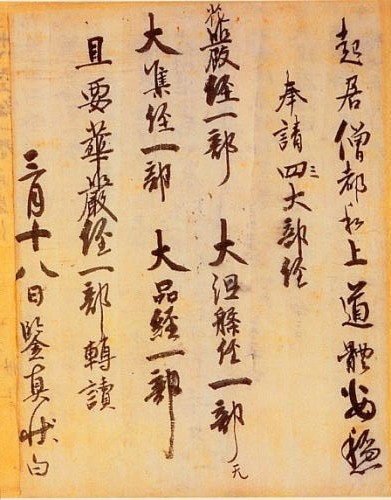 起居僧都和上道體安穩
奉請四三大部经
花嚴经一部　大涅槃经一部无
大集经一部　大品経一部
且要華嚴经一部轉讀
三月十八日鑒真状白